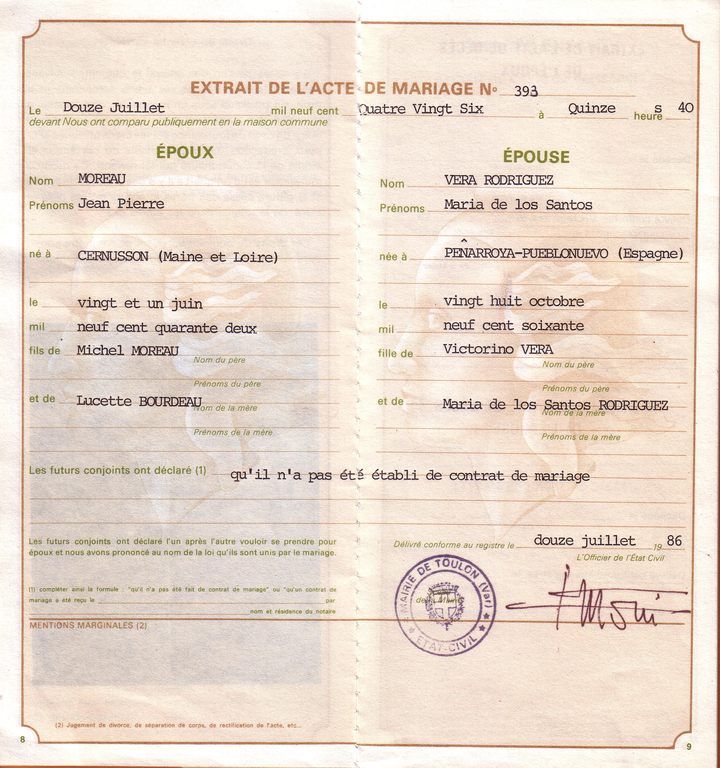 EXTRAIT DE L'ACTE DE MARIAGE No 393
Le Douze Juillet mil neuf cent Quatre Vingt Six à Quinze heure s 40
devant Nous ont comparu publiquement en la maison commune
ÉPOUX
Nom MOREAU
Prénoms Jean Pierre
né à CERNUSSON (Maine et Loire)
le vingt et un juin
mil neuf cent quarante deux
fils de Michel MOREAU
Nom du père
Prénoms du père
et de Lucette BOURDEAU
Nom de la mère
Prénoms de la mère
ÉPOUSE
Nom VERA RODRIGUEZ
Prénoms Maria de los Santos
née à PEÑARROYA-PUEBLONUEVO (Espagne)
le vingt huit octobre
mil neuf cent soixante
fille de Victorino VERA
Nom du père
Prénoms du père
et de Maria de los Santos RODRIGUEZ
Nom de la mère
Prénoms de la mère
Les futurs conjoints ont déclaré (1) qu'il n'a pas été établi de contrat de mariage
Les futurs conjoints ont déclaré l'un après l'autre vouloir se prendre pour
époux et nous avons prononcé au nom de la loi qu'ils sont unis par le mariage.
(1) compléter ainsi la formule : "qu'il n'a pas été fait de contrat de mariage" ou "qu'un contrat de
mariage a été reçu le par
nom et résidence du notaire
MENTIONS MARGINALES (2)
(2) Jugement de divorce, de séparation de corps, de rectification de l'acte, etc...
8
Délivré conforme au registre le douze juillet 1986
L'Officier de l'État Civil
MAIRIE DE TOULON (Var)
ETAT-CIVIL
9